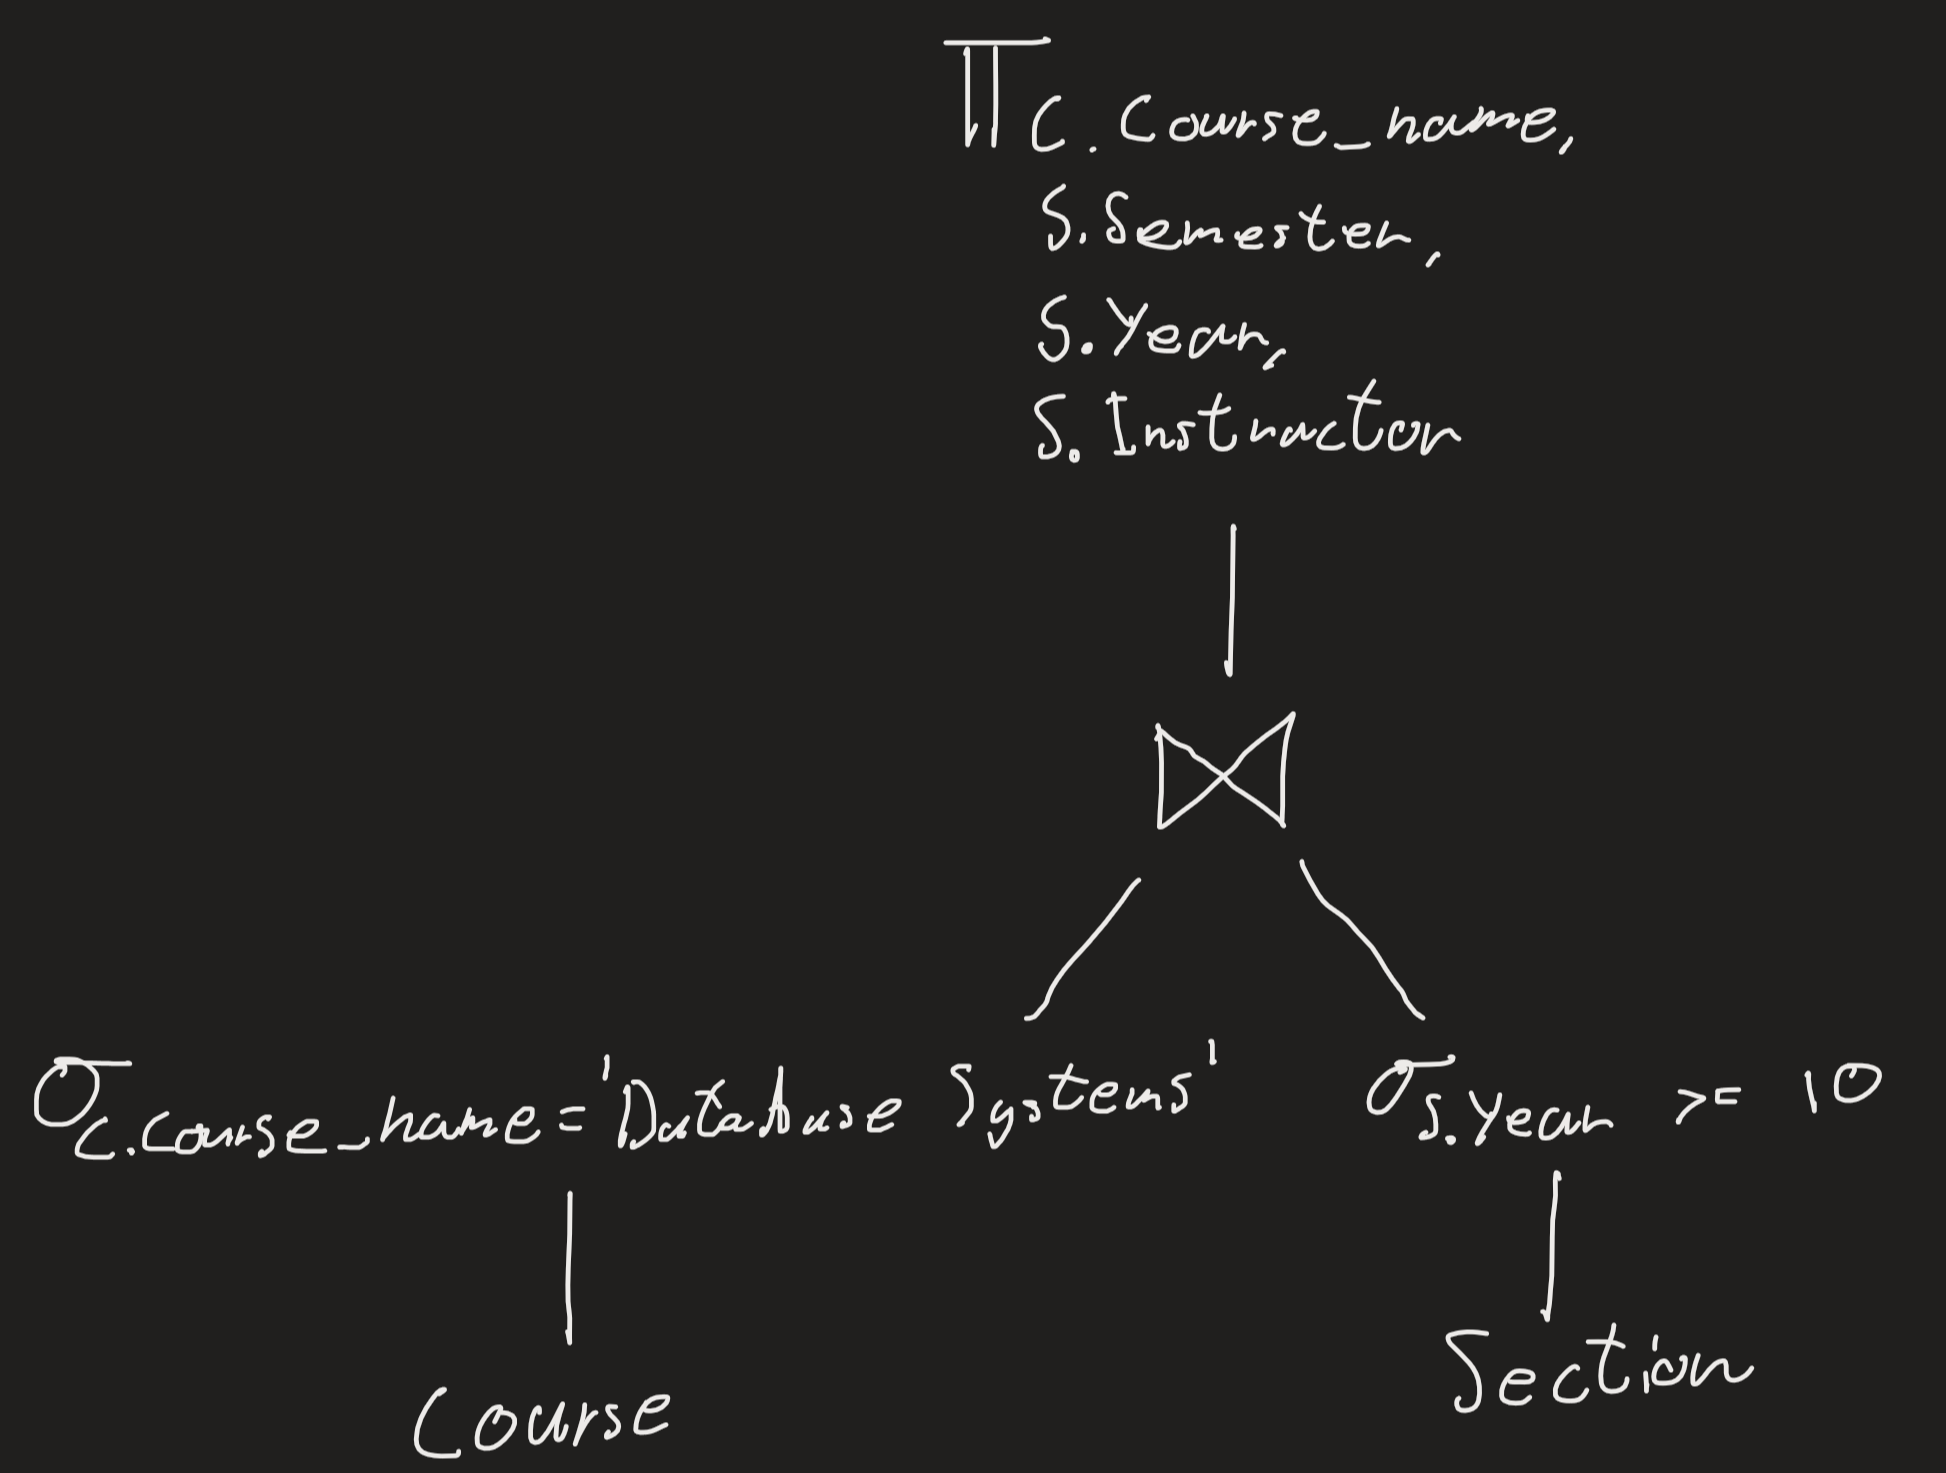 Π C.Course_name,
S.Semester,
S.Year,
S.Instructor
⋈
σ C.Course_name = 'Database Systems'
σ S.Year >= 10
Course
Section